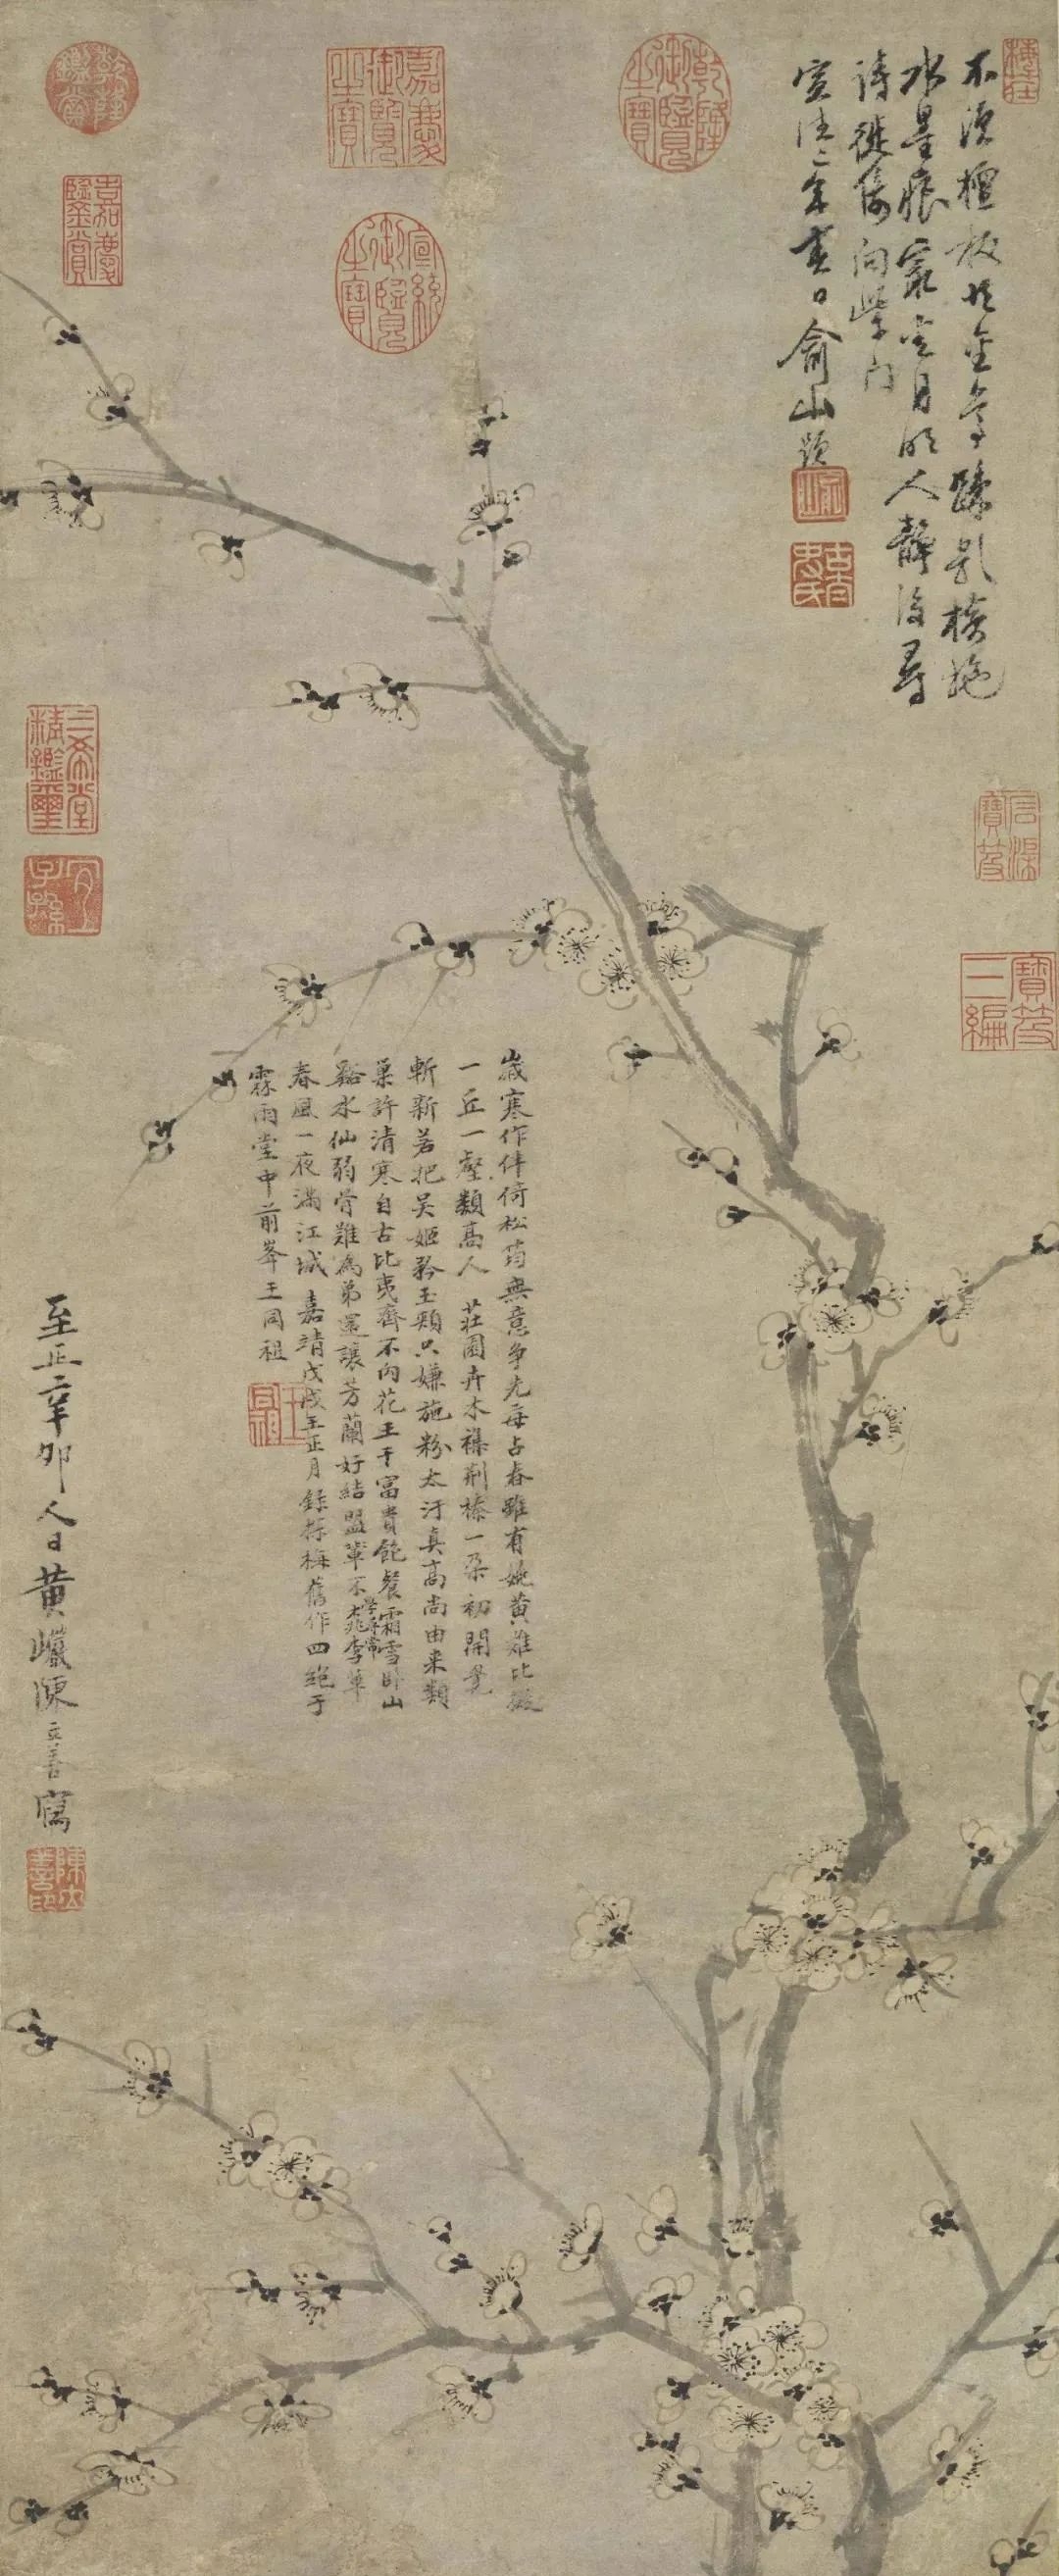 不須檀板共金尊疎影橫斜
水墨痕最愛月明人靜後尋
詩徙倚向柴門
宣德二年春日俞山題
歲寒作伴倚松筠無意爭先每占春雖有姚黃難比擬
一丘一壑類高人 莊園卉木襍荆榛一朵初開覺
斬新若把吳姬矜玉頰只嫌施粉太汙真高尚由來類
巢許清寒自古比夷齊不向花王干富貴飽餐霜雪卧山
谿水仙弱骨難為弟還讓芳蘭好結盟羣不桃李羣
春風一夜滿江城 嘉靖戊戌王正月錄探梅舊作四絕于
霖雨堂中前峯王同祖
至正辛卯人日黃巖陳立善寫
陳立善印
乾隆鑑賞
嘉慶御覽之寶
乾隆御覽之寶
嘉慶鑒賞
宣統御覽之寶
三希堂精鑑璽
宜子孫
石渠寶笈
寶笈三編